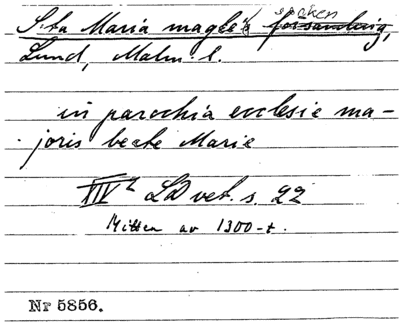 S:ta Maria magle's socken
Lund, Malm. l.
in parochia ecclesie ma-
joris beate Marie
XIV 2 LD vet. s. 22
Mitten av 1300-t.
Nr 5856.